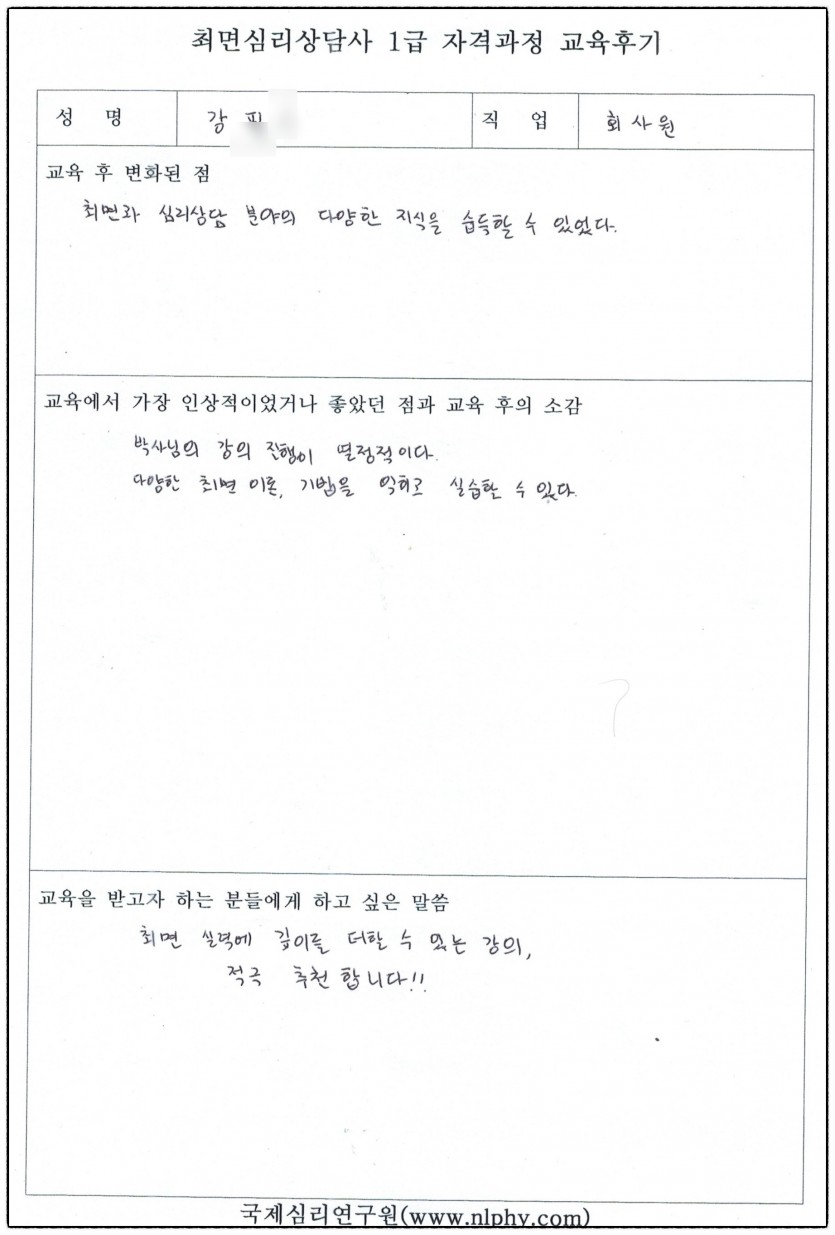 최면심리상담사 1급 자격과정 교육후기
성 명 강 직 업 회사원
교육 후 변화된 점
최면과 심리상담 분야의 다양한 지식을 습득할 수 있었다.
교육에서 가장 인상적이었거나 좋았던 점과 교육 후의 소감
박사님의 강의 진행이 열정적이다.
다양한 최면 이론, 기법을 익히고 실습할 수 있다.
교육을 받고자 하는 분들에게 하고 싶은 말씀
최면 실력에 깊이를 더할 수 있는 강의,
적극 추천 합니다!!
국제심리연구원(www.nlphy.com)